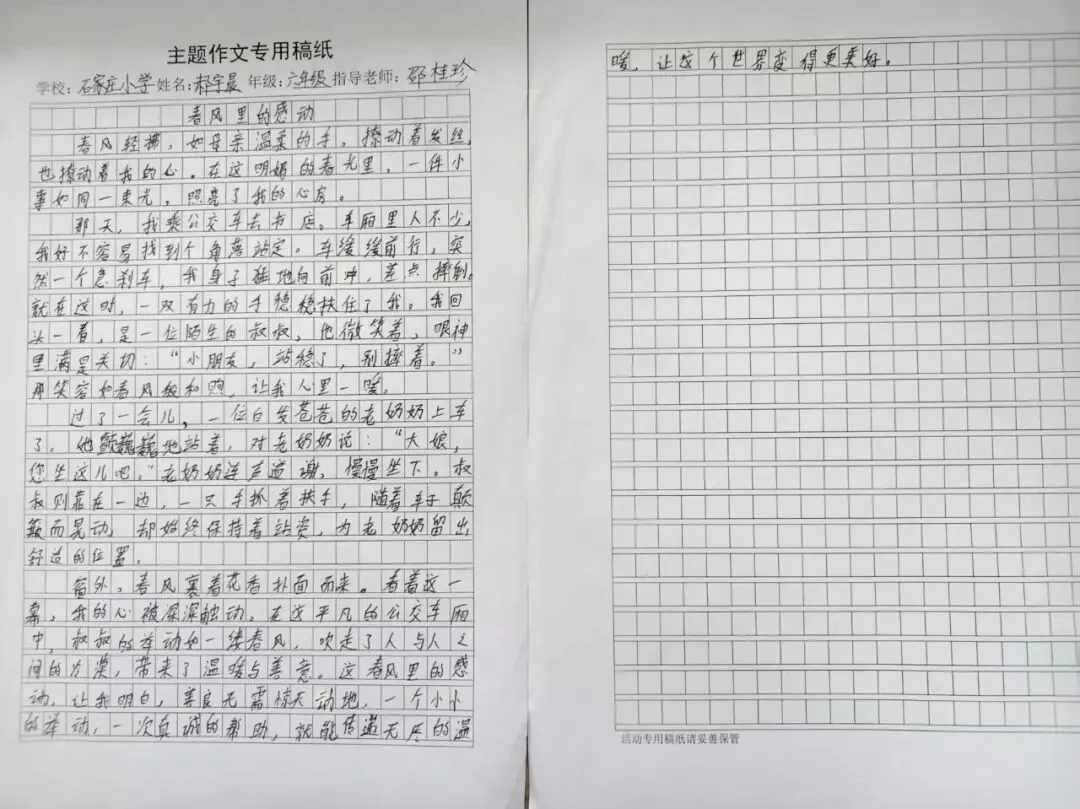 主题作文专用稿纸
学校：石家庄小学 姓名：郝宇晨 年级：六年级 指导老师：邵桂珍
春风里的感动
春风轻拂，如母亲温柔的手，撩动着发丝，
也撩动着我的心。在这明媚的春光里，一件小
事如同一束光，照亮了我的心房。
那天，我乘公交车去书店。车厢里人不少，
我好不容易找到个角落站定。车缓缓前行，突
然一个急刹车，我身子猛地向前冲，差点摔倒。
就在这时，一双有力的手稳稳扶住了我。我回
头一看，是一位陌生的叔叔，他微笑着，眼神
里满是关切：“小朋友，站稳了，别摔着。”
那笑容如春风般和煦，让我心里一暖。
过了一会儿，一位白发苍苍的老奶奶上车
了。她颤巍巍地站着，对老奶奶说：“大娘，
您坐这儿吧。”老奶奶连声道谢，慢慢坐下。叔
叔则靠在一边，一只手抓着扶手，随着车子颠
簸而晃动，却始终保持着站姿，为老奶奶留出
舒适的位置。
窗外，春风裹着花香扑面而来。看着这一
幕，我的心被深深触动。在这平凡的公交车厢
中，叔叔的举动如一缕春风，吹走了人与人之
间的冷漠，带来了温暖与善意。这春风里的感
动，让我明白，善良无需惊天动地，一个小小
的举动，一次真诚的帮助，就能传递无尽的温
暖，让这个世界变得更美好。
活动专用稿纸请妥善保管